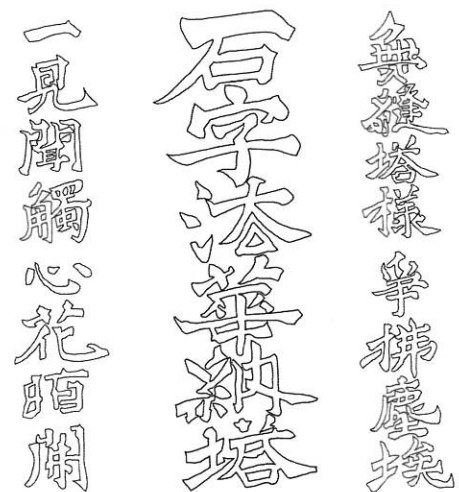 無縫塔様 爭拂塵埃
石字法華納塔
一見聞觸 心花開